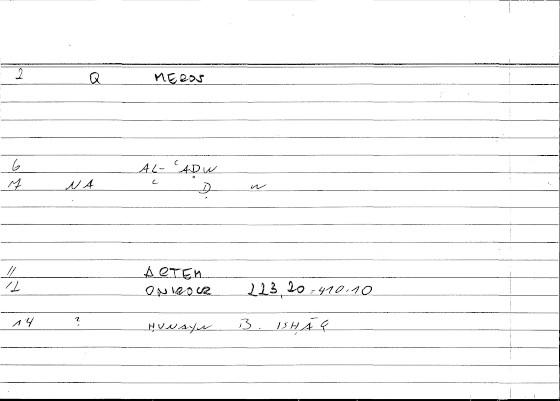 2 Q MEROS
6 AL-ʿAḌW
7 NA ʿ Ḍ W
11 ARTEM
12 ONIROCR 223,20=410.10
14 ? ḤUNAYN B. ISḤĀQ